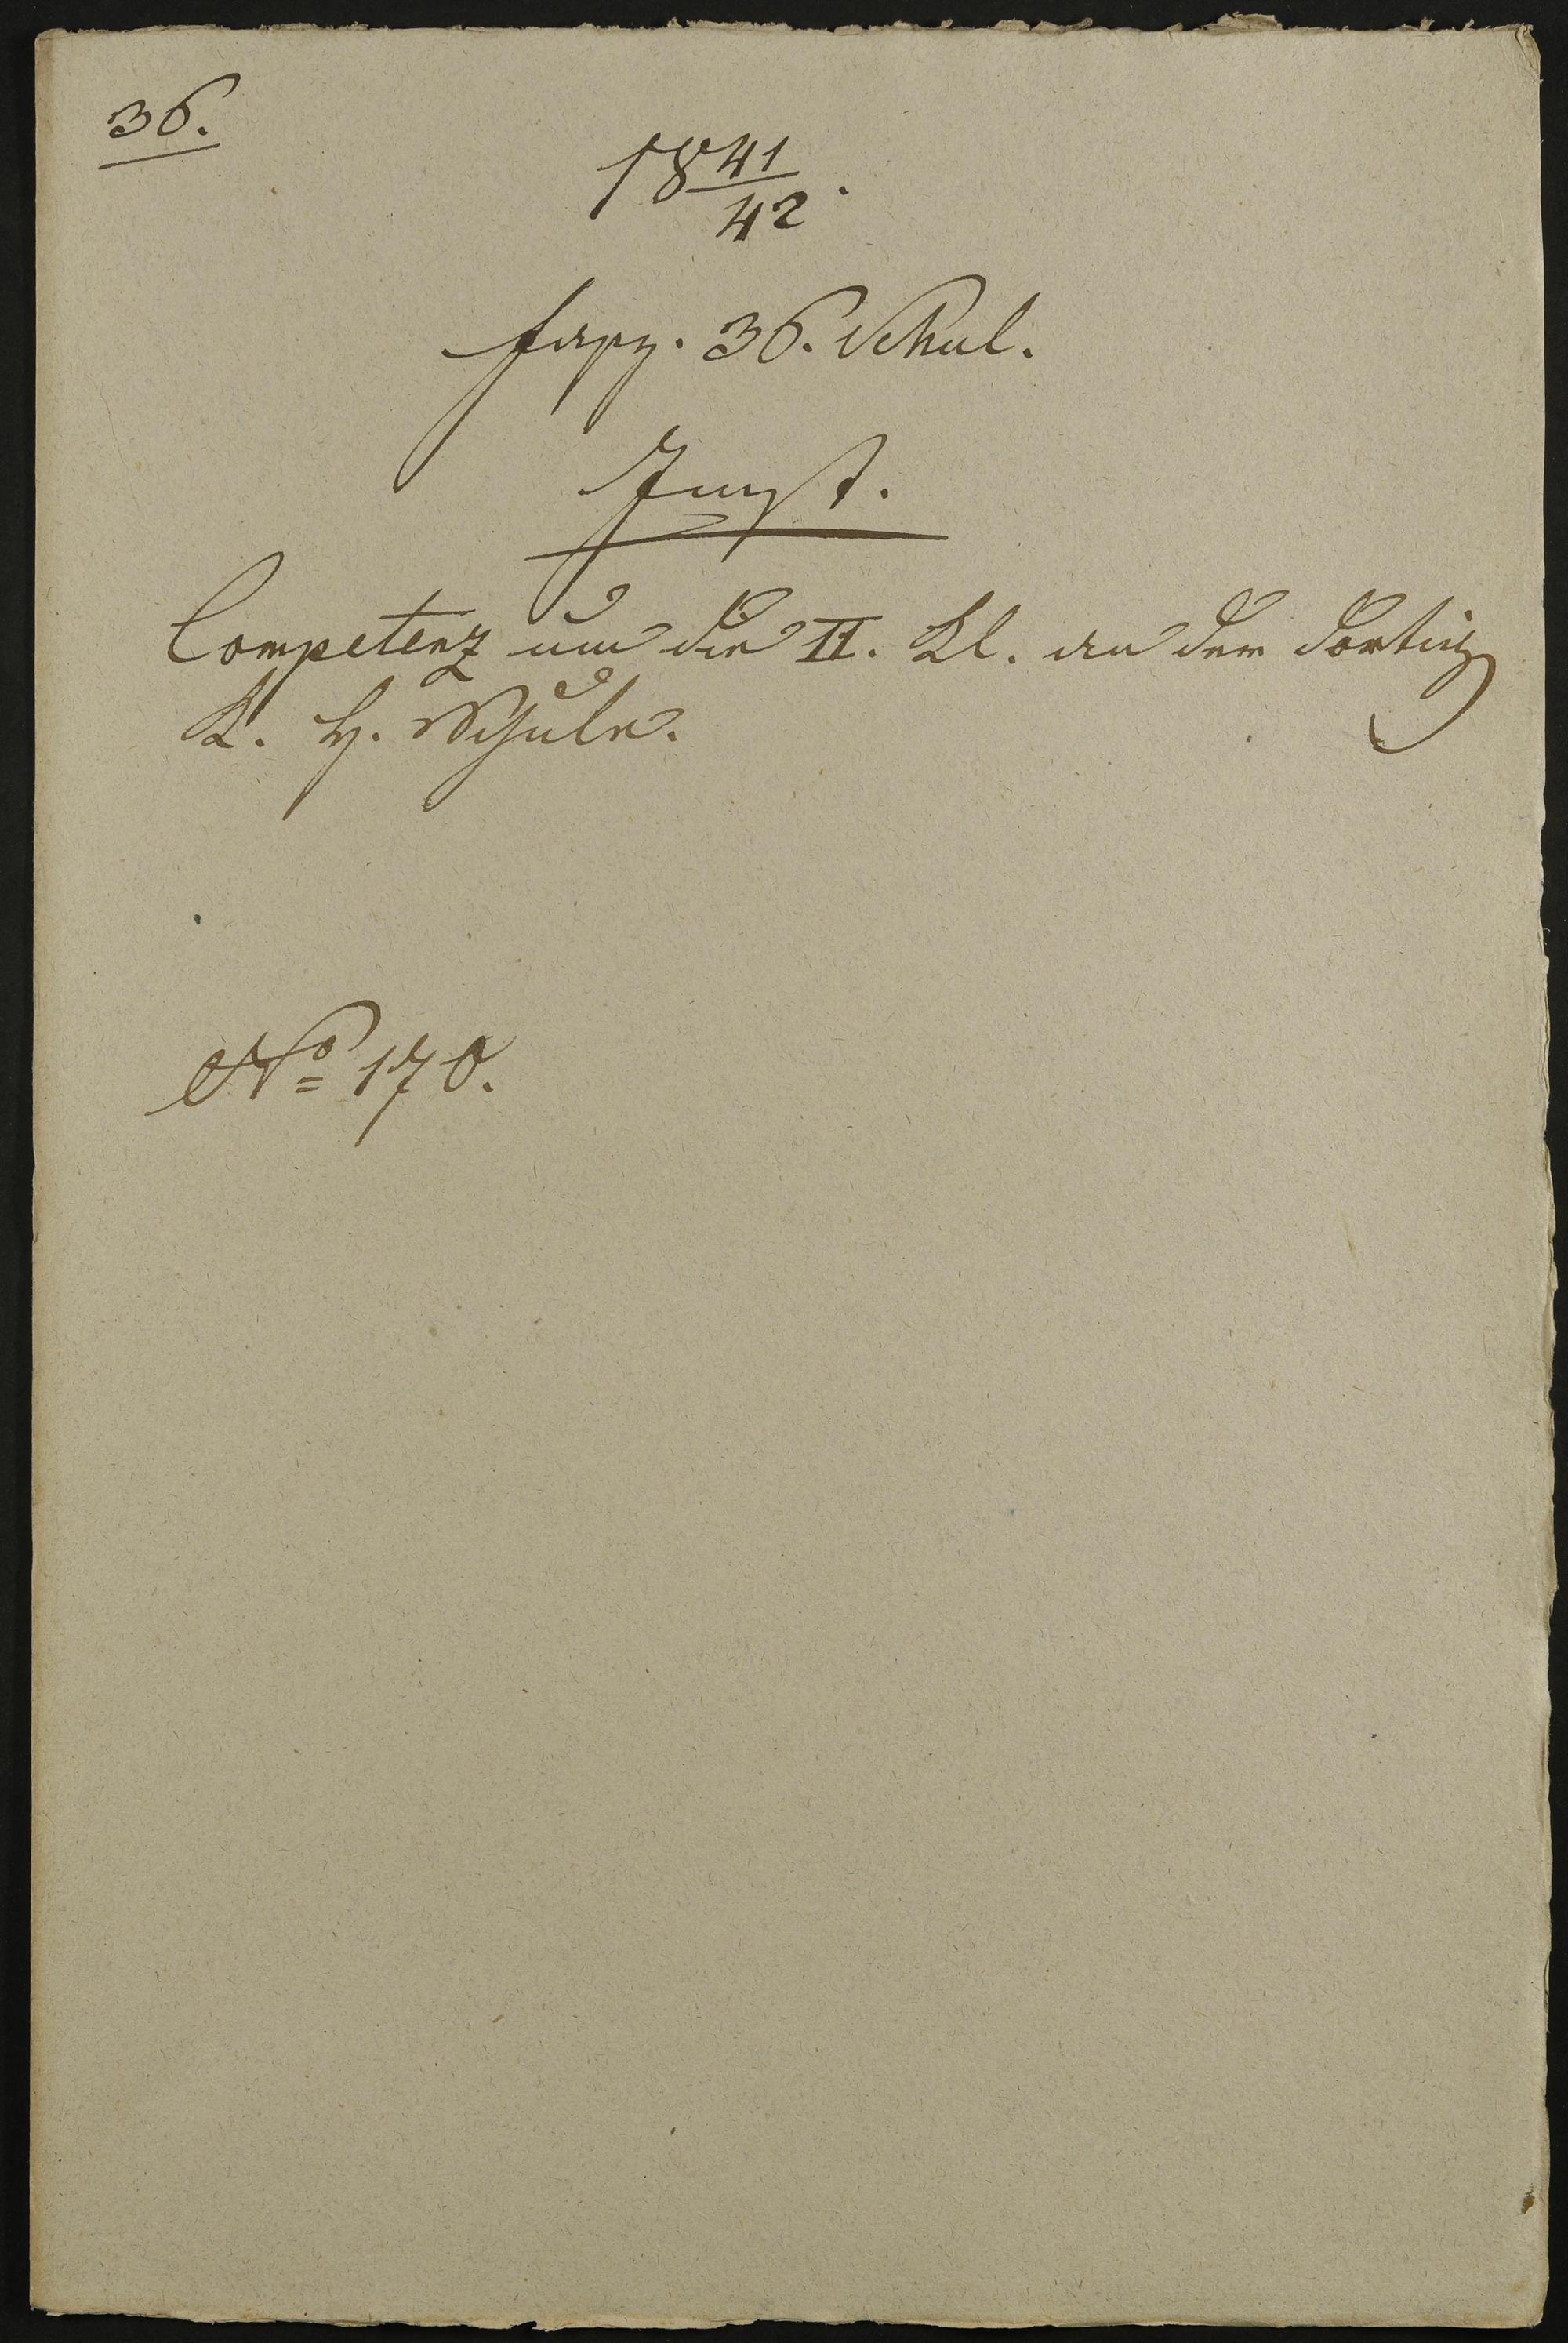 36.
18 41/42.
fasz. 36. Schul.
Imst.
Competenz um die II. Kl. an der dortig
K. H. Schule.
No 170.